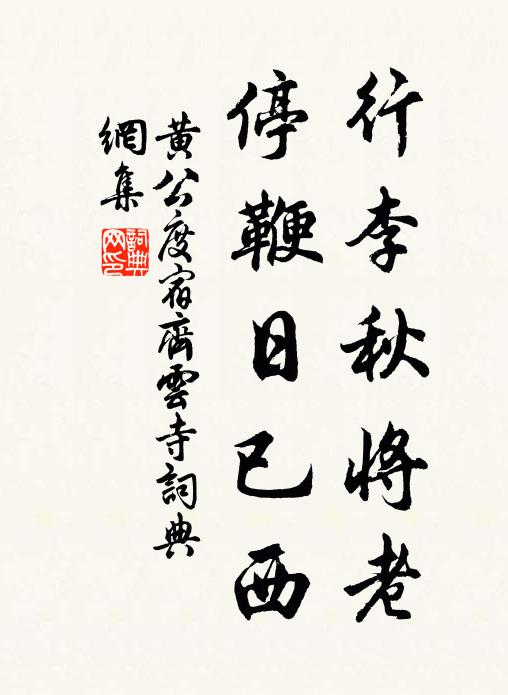 行李秋將老
停鞭日已西
黃公度宿齊雲寺詞典
網集
詞典
网印